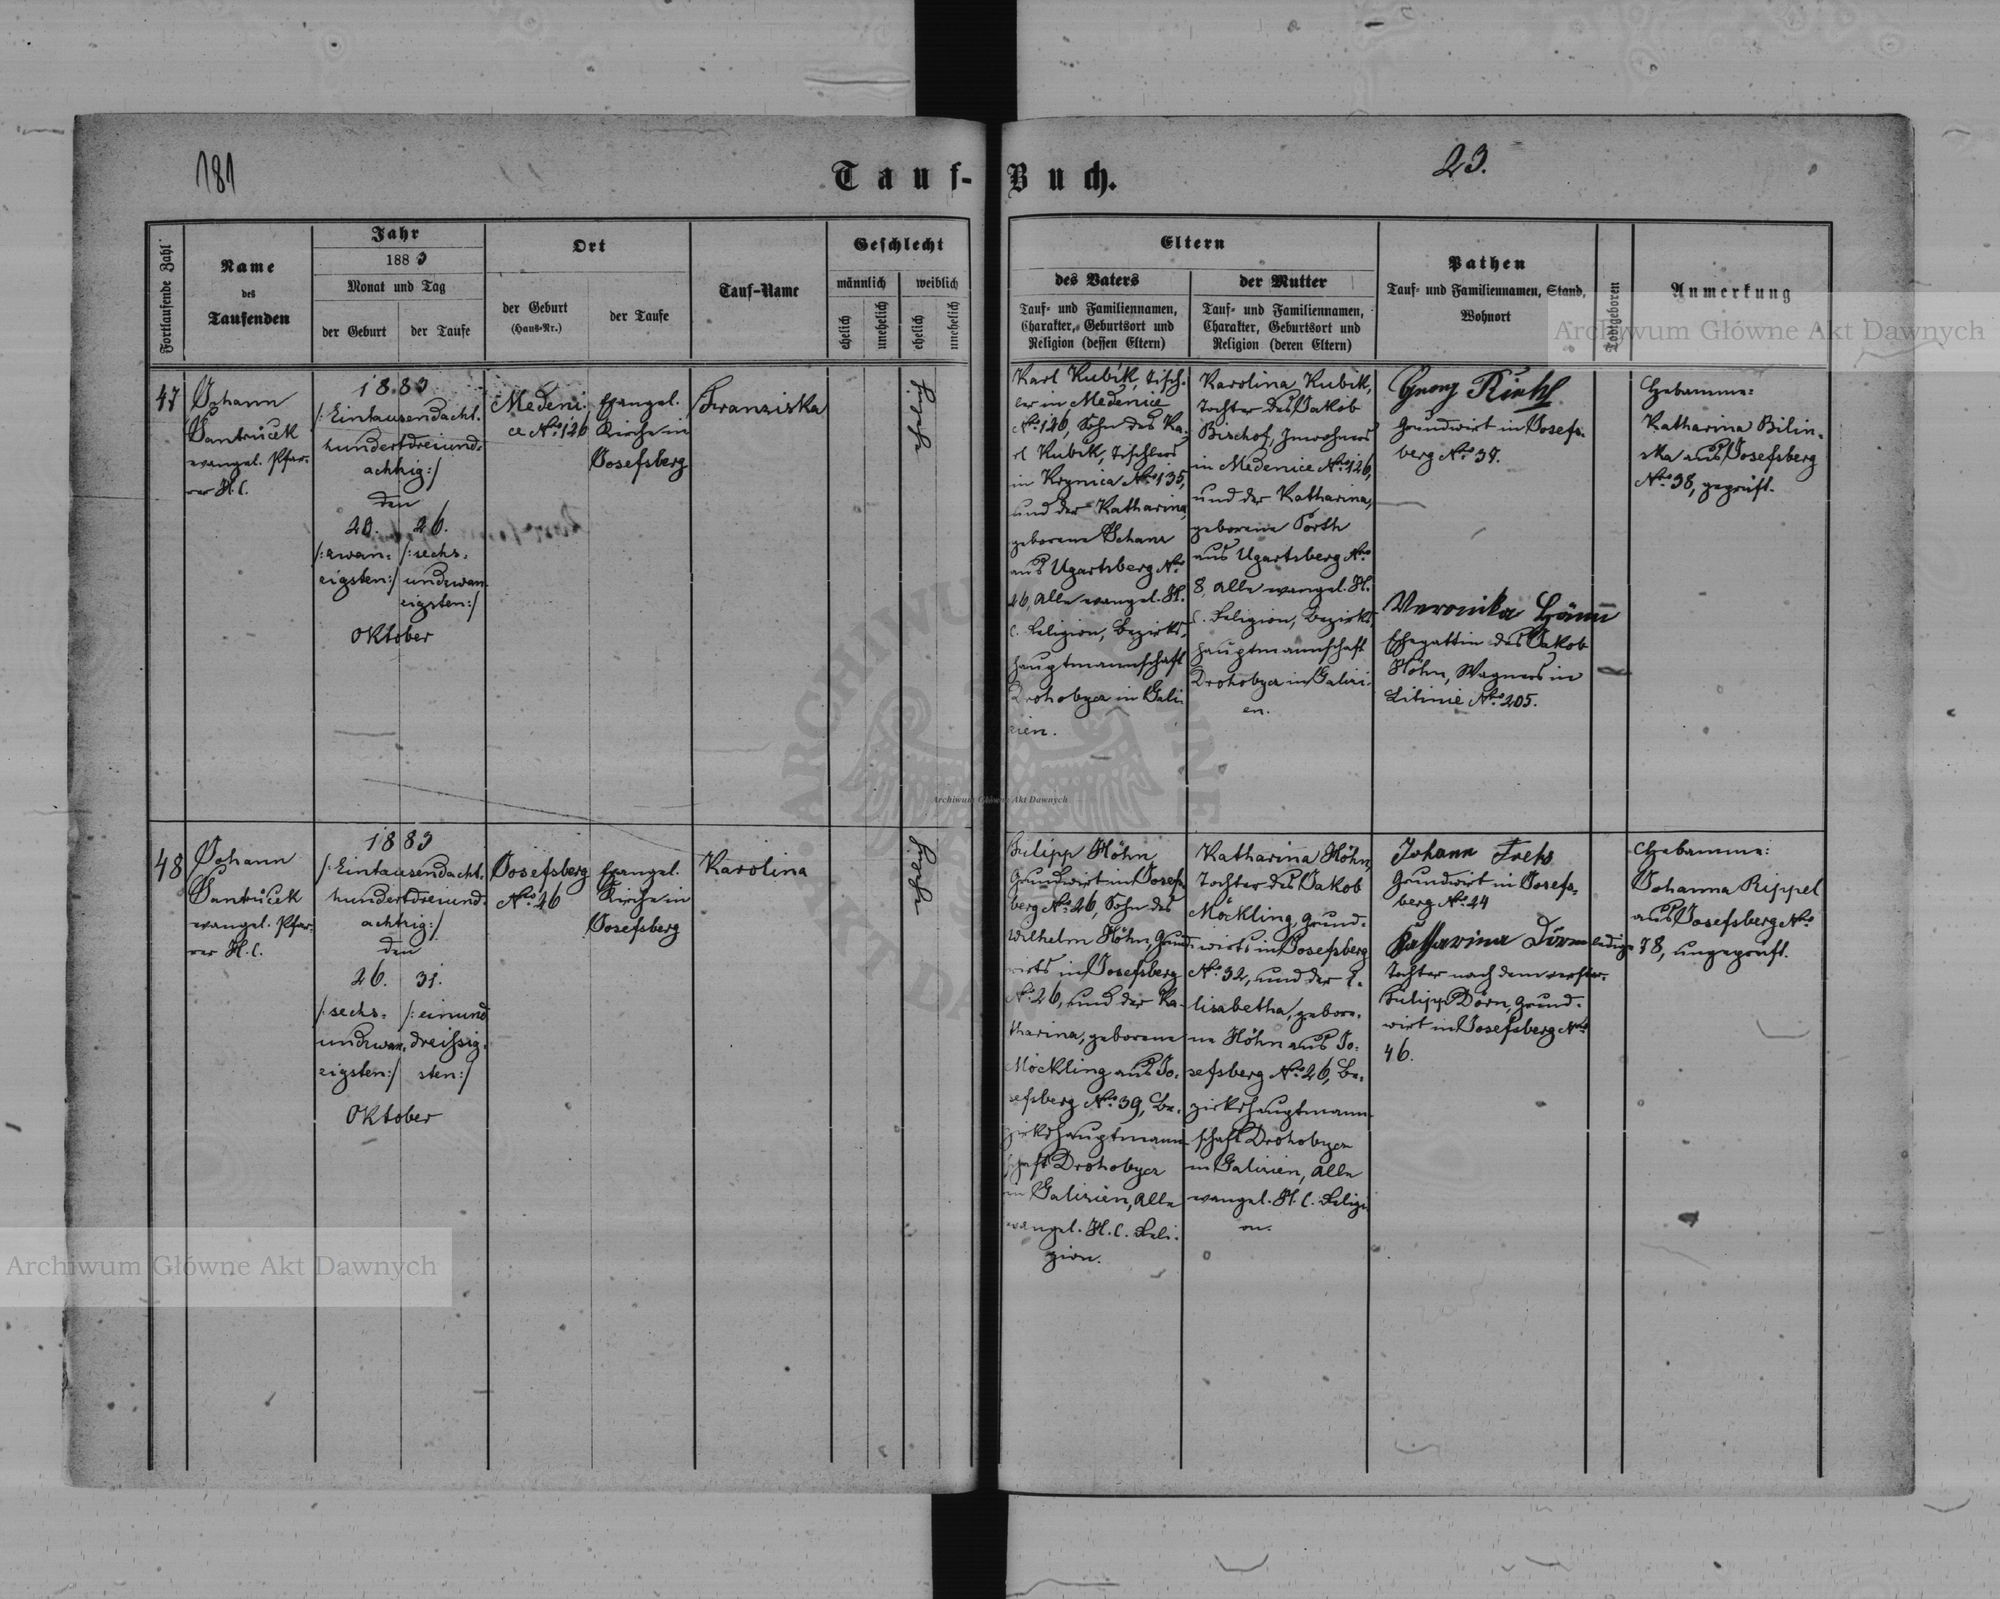 181
Tauf-Buch.
23.
Fortlaufende Zahl
Name
des
Taufenden
Jahr
1883
Monat und Tag
der Geburt
der Taufe
Ort
der Geburt
(Haus-Nr.)
der Taufe
Tauf-Name
Geschlecht
männlich
weiblich
ehelich
unehelich
ehelich
unehelich
Eltern
des Vaters
Tauf- und Familiennamen,
Charakter, Geburtsort und
Religion (dessen Eltern)
der Mutter
Tauf- und Familiennamen,
Charakter, Geburtsort und
Religion (deren Eltern)
Pathen
Tauf- und Familiennamen, Stand,
Wohnort
Todtgeboren
Anmerkung
47
Johann
Jantrücek
evangel. Pfar-
rer H.C.
1883
/:Eintausendacht-
hundertdreiund-
achtzig:/
den
20.
26.
/:zwan-
zigsten:/
/:sechs-
undzwan-
zigsten:/
Oktober
Medeni-
ce No. 126
Evangel.
Kirche in
Josefsberg
Franziska
ehelich
Karl Kubik, Tisch-
ler in Medenice
No. 126, Sohn des Ka-
rl Kubik, Tischlers
in Krynica No. 135,
und der Katharina,
geborene Schanz
aus Ugartsberg No.
26, alle evangel. H.
C. Religion, Bezirks-
hauptmannschaft
Drohobycz in Gali-
zien.
Karolina Kubik,
Tochter des Jakob
Bischof, Inwohners
in Medenice No. 126,
und der Katharina,
geborene Porth
aus Ugartsberg No.
8, alle evangel. H.
C. Religion, Bezirks-
hauptmannschaft
Drohobycz in Galizi-
en.
Georg
Grundwirt in Josefs-
berg No. 37.
Veronika Höhn
Ehegattin des Jakob
Höhn, Wagners in
Litinie No. 205.
Hebamme:
Katharina Bilin-
ska aus Josefsberg
No. 38, geprüft.
48
Johann
Jantrücek
evangel. Pfar-
rer H.C.
1883
/:Eintausendacht-
hundertdreiund-
achtzig:/
den
26.
31.
/:sechs-
undzwan-
zigsten:/
/:einund
dreissig-
sten:/
Oktober
Josefsberg
No. 26
Evangel.
Kirche in
Josefsberg
Karolina
ehelich
Filipp Höhn
Grundwirt in Josefs-
berg No. 26, Sohn des
Wilhelm Höhn, Grund-
wirts in Josefsberg
No. 26, und der Ka-
tharina, geborene
Möckling aus Jo-
sefsberg No. 39, Be-
zirkshauptmann-
schaft Drohobycz
in Galizien, alle
evangel. H.C. Reli-
gion.
Katharina Höhn,
Tochter des Jakob
Möckling, Grund-
wirts in Josefsberg
No. 32, und der E-
lisabetha, gebore-
ne Höhn aus Jo-
sefsberg No. 26, Be-
zirkshauptmann-
schaft Drohobycz
in Galizien, alle
evangel. H.C. Religi-
on.
Johann
Grundwirt in Josefs-
berg No. 44
Katharina Dörn ledige
Tochter nach dem verstor.
Filipp Dörn, Grund-
wirt in Josefsberg No.
46.
Hebamme:
Johanna Rippel
aus Josefsberg No.
78, ungeprüft.
Archiwum Główne Akt Dawnych
Archiwum Główne Akt Dawnych
Archiwum Główne Akt Dawnych